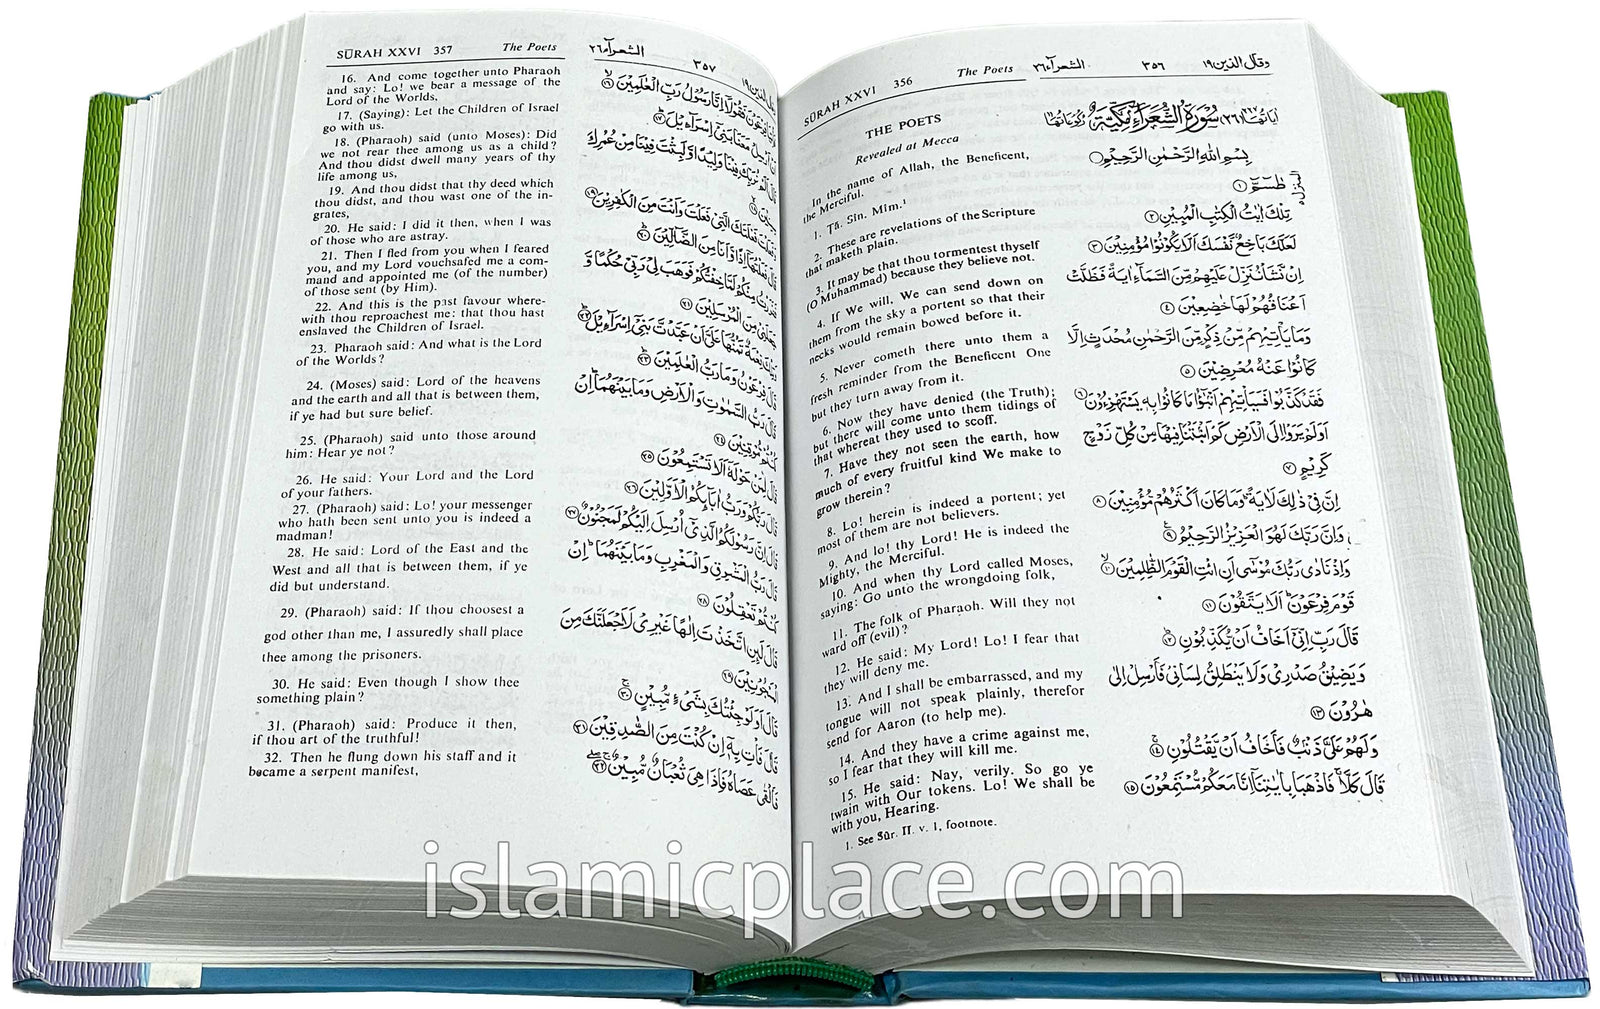 SŪRAH XXVI 356
The Poets
الشعرآء ٢٦
٣٥٦
وقال الذين ١٩
THE POETS
Revealed at Mecca
In the name of Allah, the Beneficent,
the Merciful.
1. Tâ. Sîn. Mîm.¹
2. These are revelations of the Scripture
that maketh plain.
3. It may be that thou tormentest thyself
(O Muhammad) because they believe not.
4. If We will, We can send down on
them from the sky a portent so that their
necks would remain bowed before it.
5. Never cometh there unto them a
fresh reminder from the Beneficent One
but they turn away from it.
6. Now they have denied (the Truth);
but there will come unto them tidings of
that whereat they used to scoff.
7. Have they not seen the earth, how
much of every fruitful kind We make to
grow therein?
8. Lo! herein is indeed a portent; yet
most of them are not believers.
9. And lo! thy Lord! He is indeed the
Mighty, the Merciful.
10. And when thy Lord called Moses,
saying: Go unto the wrongdoing folk,
11. The folk of Pharaoh. Will they not
ward off (evil)?
12. He said: My Lord! Lo! I fear that
they will deny me.
13. And I shall be embarrassed, and my
tongue will not speak plainly, therefor
send for Aaron (to help me).
14. And they have a crime against me,
so I fear that they will kill me.
15. He said: Nay, verily. So go ye
twain with Our tokens. Lo! We shall be
with you, Hearing.
1. See Sûr. II. v. 1, footnote.
سُوْرَةُ الشُّعَرَاءِ مَكِّيَّةٌ
بِسْمِ اللهِ الرَّحْمٰنِ الرَّحِيْمِ
طٰسٓمّٓ ۝١
تِلْكَ اٰيٰتُ الْكِتٰبِ الْمُبِيْنِ ۝٢
لَعَلَّكَ بَاخِعٌ نَّفْسَكَ اَلَّا يَكُوْنُوْا مُؤْمِنِيْنَ ۝٣
اِنْ نَّشَاْ نُنَزِّلْ عَلَيْهِمْ مِّنَ السَّمَآءِ اٰيَةً فَظَلَّتْ
اَعْنَاقُهُمْ لَهَا خٰضِعِيْنَ ۝٤
وَمَا يَاْتِيْهِمْ مِّنْ ذِكْرٍ مِّنَ الرَّحْمٰنِ مُحْدَثٍ اِلَّا
كَانُوْا عَنْهُ مُعْرِضِيْنَ ۝٥
فَقَدْ كَذَّبُوْا فَسَيَاْتِيْهِمْ اَنْۢبٰٓؤُا مَا كَانُوْا بِهٖ يَسْتَهْزِءُوْنَ ۝٦
اَوَلَمْ يَرَوْا اِلَى الْاَرْضِ كَمْ اَنْۢبَتْنَا فِيْهَا مِنْ كُلِّ زَوْجٍ
كَرِيْمٍ ۝٧
اِنَّ فِيْ ذٰلِكَ لَاٰيَةً ؕ وَمَا كَانَ اَكْثَرُهُمْ مُّؤْمِنِيْنَ ۝٨
وَاِنَّ رَبَّكَ لَهُوَ الْعَزِيْزُ الرَّحِيْمُ ۝٩
وَاِذْ نَادٰى رَبُّكَ مُوْسٰٓى اَنِ ائْتِ الْقَوْمَ الظّٰلِمِيْنَ ۝١٠
قَوْمَ فِرْعَوْنَ ؕ اَلَا يَتَّقُوْنَ ۝١١
قَالَ رَبِّ اِنِّيْٓ اَخَافُ اَنْ يُّكَذِّبُوْنِ ۝١٢
وَيَضِيْقُ صَدْرِيْ وَلَا يَنْطَلِقُ لِسَانِيْ فَاَرْسِلْ اِلٰى
هٰرُوْنَ ۝١٣
وَلَهُمْ عَلَيَّ ذَنْۢبٌ فَاَخَافُ اَنْ يَّقْتُلُوْنِ ۝١٤
قَالَ كَلَّا ۚ فَاذْهَبَا بِاٰيٰتِنَآ اِنَّا مَعَكُمْ مُّسْتَمِعُوْنَ ۝١٥
SŪRAH XXVI 357
The Poets
الشعرآء ٢٦
٣٥٧
16. And come together unto Pharaoh
and say: Lo! we bear a message of the
Lord of the Worlds,
17. (Saying): Let the Children of Israel
go with us.
18. (Pharaoh) said (unto Moses): Did
we not rear thee among us as a child?
And thou didst dwell many years of thy
life among us,
19. And thou didst that thy deed which
thou didst, and thou wast one of the in-
grates,
20. He said: I did it then, when I was
of those who are astray.
21. Then I fled from you when I feared
you, and my Lord vouchsafed me a com-
mand and appointed me (of the number)
of those sent (by Him).
22. And this is the past favour where-
with thou reproachest me: that thou hast
enslaved the Children of Israel.
23. Pharaoh said: And what is the Lord
of the Worlds?
24. (Moses) said: Lord of the heavens
and the earth and all that is between them,
if ye had but sure belief.
25. (Pharaoh) said unto those around
him: Hear ye not?
26. He said: Your Lord and the Lord
of your fathers.
27. (Pharaoh) said: Lo! your messenger
who hath been sent unto you is indeed a
madman!
28. He said: Lord of the East and the
West and all that is between them, if ye
did but understand.
29. (Pharaoh) said: If thou choosest a
god other than me, I assuredly shall place
thee among the prisoners.
30. He said: Even though I show thee
something plain?
31. (Pharaoh) said: Produce it then,
if thou art of the truthful!
32. Then he flung down his staff and it
became a serpent manifest,
فِرْعَوْنَ فَقُوْلَآ اِنَّا رَسُوْلُ رَبِّ الْعٰلَمِيْنَ ۝١٦
اَنْ اَرْسِلْ مَعَنَا بَنِيْٓ اِسْرَآءِيْلَ ۝١٧
قَالَ اَلَمْ نُرَبِّكَ فِيْنَا وَلِيْدًا وَّلَبِثْتَ فِيْنَا مِنْ عُمُرِكَ
سِنِيْنَ ۝١٨
وَفَعَلْتَ فَعْلَتَكَ الَّتِيْ فَعَلْتَ وَاَنْتَ مِنَ الْكٰفِرِيْنَ ۝١٩
قَالَ فَعَلْتُهَآ اِذًا وَّاَنَا مِنَ الضَّآلِّيْنَ ۝٢٠
فَفَرَرْتُ مِنْكُمْ لَمَّا خِفْتُكُمْ فَوَهَبَ لِيْ رَبِّيْ حُكْمًا وَّ
جَعَلَنِيْ مِنَ الْمُرْسَلِيْنَ ۝٢١
وَتِلْكَ نِعْمَةٌ تَمُنُّهَا عَلَيَّ اَنْ عَبَّدْتَّ بَنِيْٓ اِسْرَآءِيْلَ ۝٢٢
قَالَ فِرْعَوْنُ وَمَا رَبُّ الْعٰلَمِيْنَ ۝٢٣
قَالَ رَبُّ السَّمٰوٰتِ وَالْاَرْضِ وَمَا بَيْنَهُمَا ؕ اِنْ
كُنْتُمْ مُّوْقِنِيْنَ ۝٢٤
قَالَ لِمَنْ حَوْلَهٗٓ اَلَا تَسْتَمِعُوْنَ ۝٢٥
قَالَ رَبُّكُمْ وَرَبُّ اٰبَآئِكُمُ الْاَوَّلِيْنَ ۝٢٦
قَالَ اِنَّ رَسُوْلَكُمُ الَّذِيْٓ اُرْسِلَ اِلَيْكُمْ لَمَجْنُوْنٌ ۝٢٧
قَالَ رَبُّ الْمَشْرِقِ وَالْمَغْرِبِ وَمَا بَيْنَهُمَا ؕ اِنْ
كُنْتُمْ تَعْقِلُوْنَ ۝٢٨
قَالَ لَئِنِ اتَّخَذْتَ اِلٰهًا غَيْرِيْ لَاَجْعَلَنَّكَ مِنَ
الْمَسْجُوْنِيْنَ ۝٢٩
قَالَ اَوَلَوْ جِئْتُكَ بِشَيْءٍ مُّبِيْنٍ ۝٣٠
قَالَ فَاْتِ بِهٖٓ اِنْ كُنْتَ مِنَ الصّٰدِقِيْنَ ۝٣١
فَاَلْقٰى عَصَاهُ فَاِذَا هِيَ ثُعْبَانٌ مُّبِيْنٌ ۝٣٢
islamicplace.com